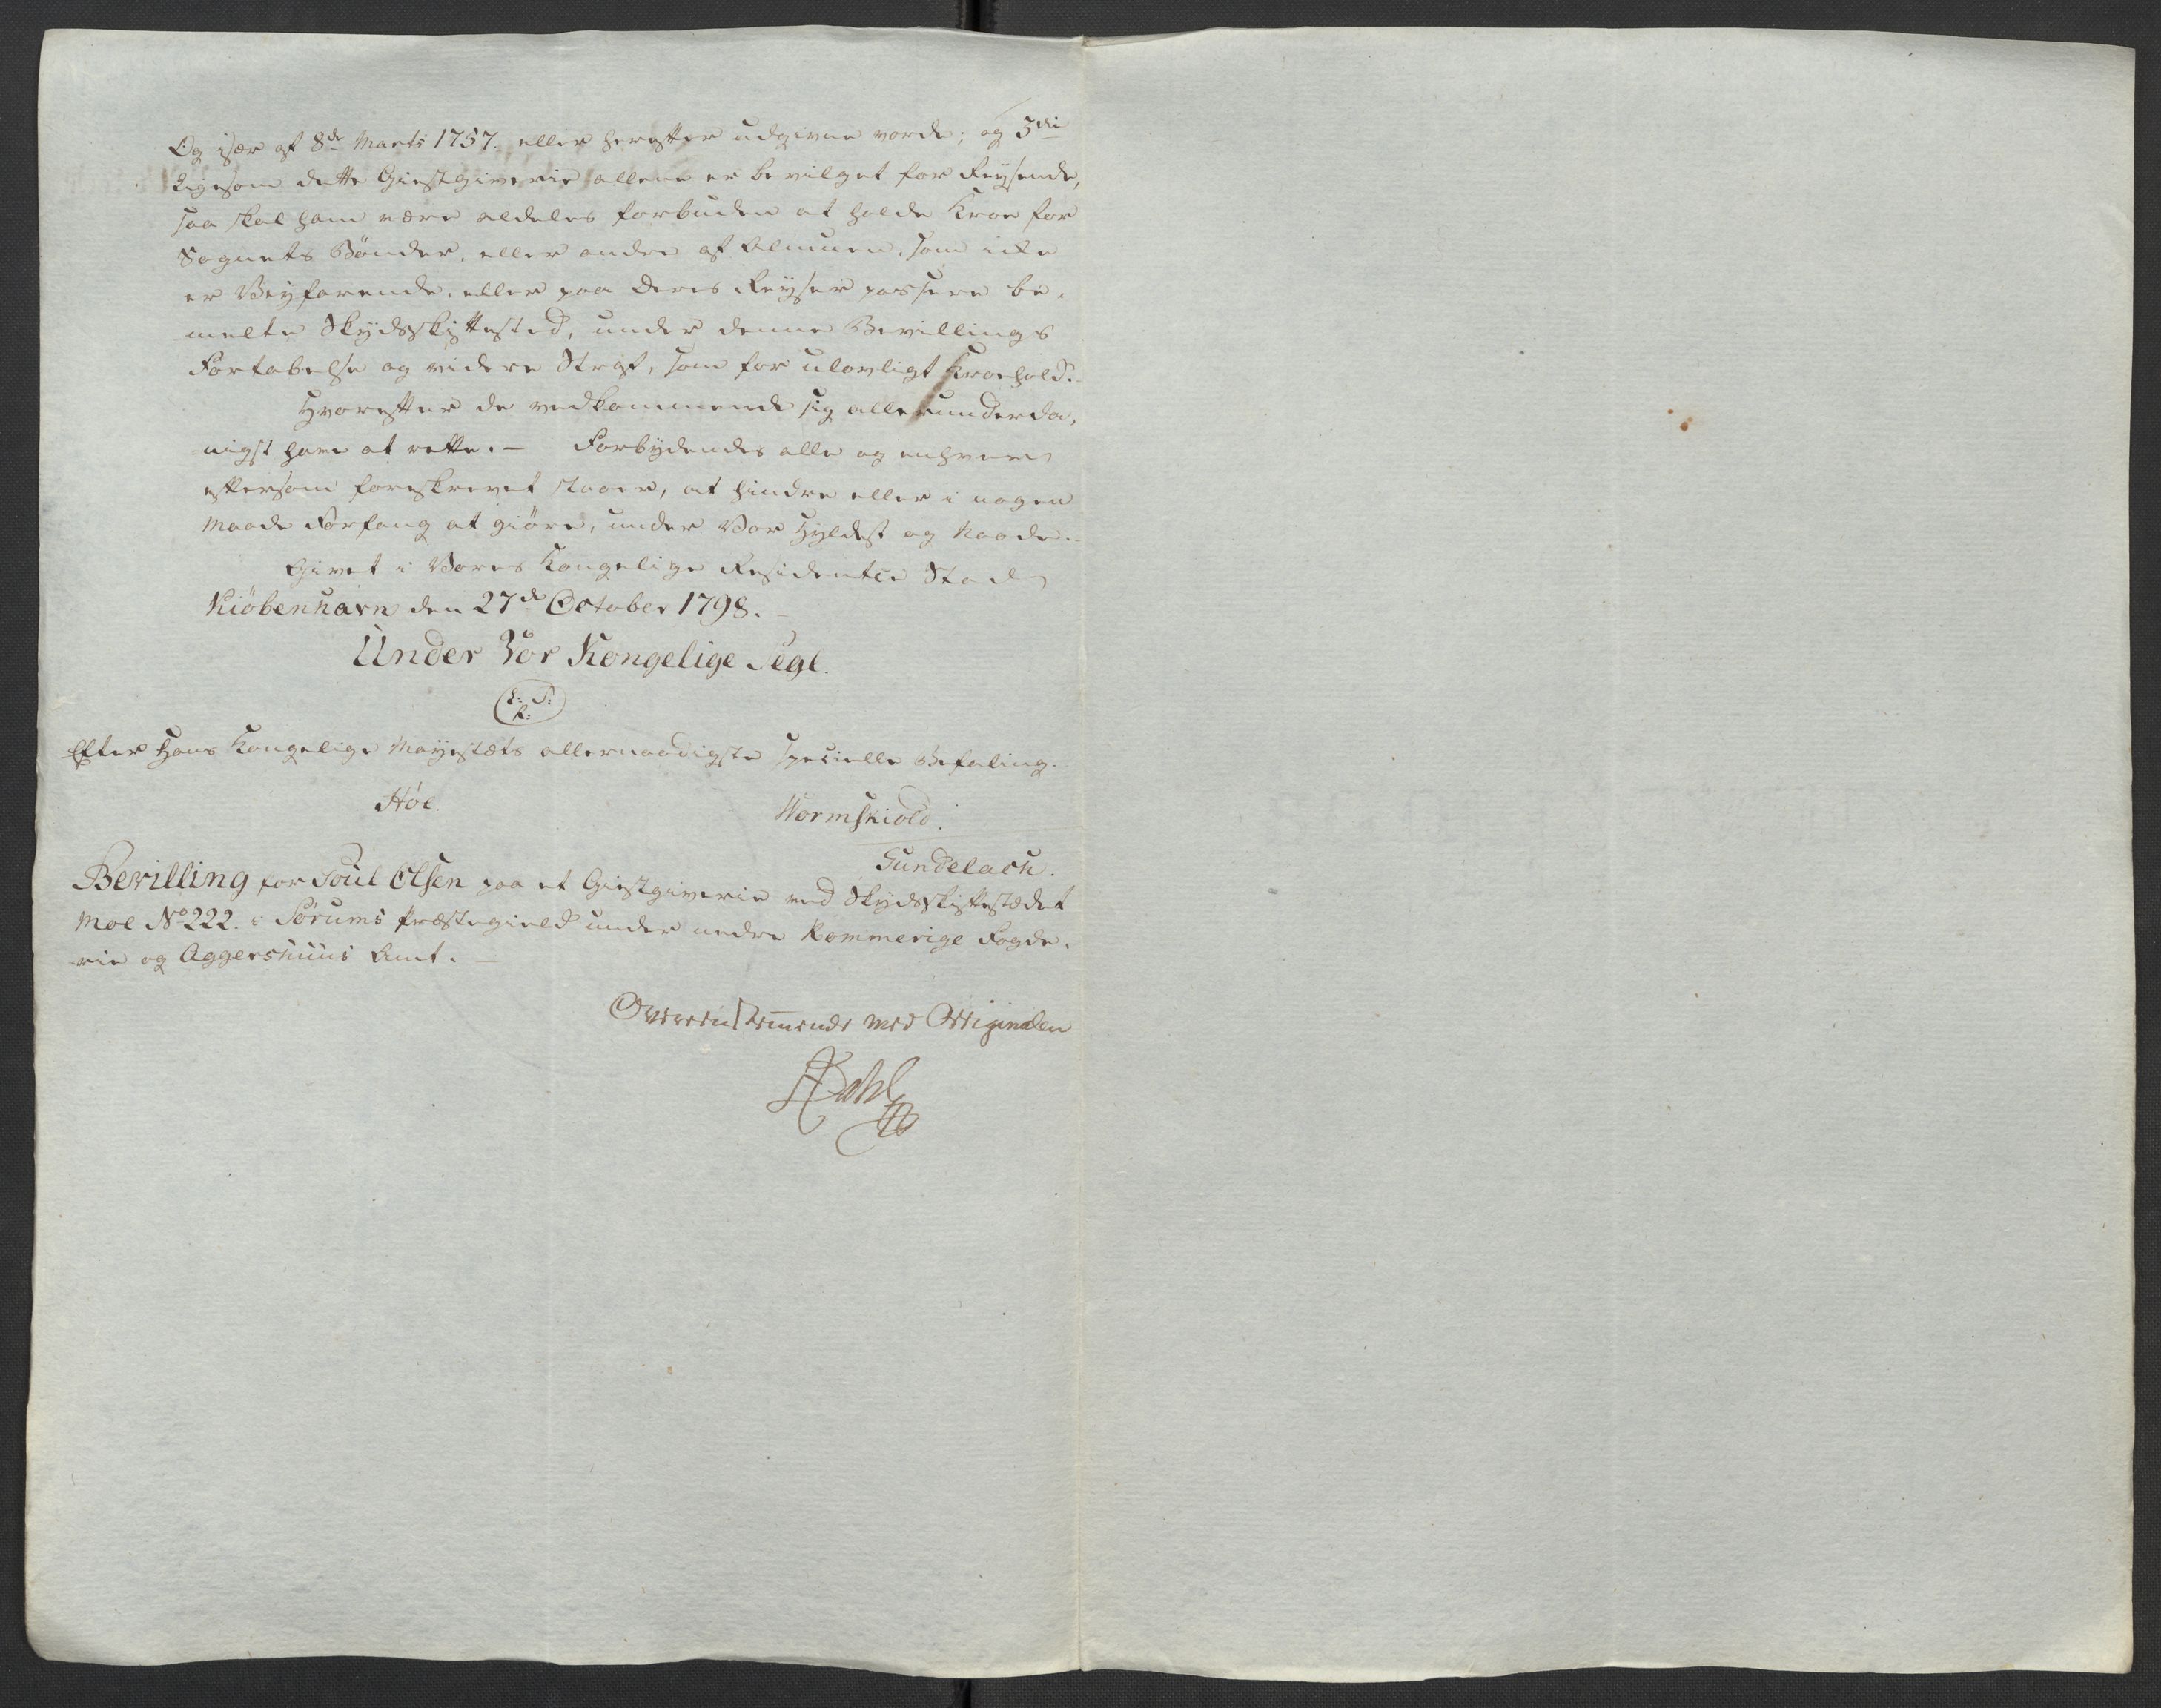 Og især af 8de Marts 1757. eller herefter udgivne vorde; og 3die
Ligesom dette Giestgiverie allene er bevilget for Reysende,
saa skal ham være aldeles forbuden at holde Kroe for
Sognets Bönder, eller andre af Almuen, som icke
er Veyfarende, eller paa deres Reyser passere be-
melte Skydsskiftested, under denne Bevillings
Fortabelse og videre Straf, som for ulovligt Kroehold.
Hvorefter de vedkommende sig allerunderda,
nigst have at rette. — Forbydendes alle og enhver
eftersom foreskrevet staaer, at hindre eller i nogen
Maade Forfang at giöre, under Vor Hyldest og Naade.
Givet i Vores Kongelige Residentce Stad
Kiöbenhavn den 27de October 1798. –
Under Vor Kongelige Segl.
L: S:
R:
Efter Hans Kongelige Mayestæts allernaadigste specielle Befaling.
Höe. Wormskiold.
Gundelach.
Bevilling for Poul Olsen paa et Giestgiverie ved Skydsskiftestædet
Moe No 222. i Sörums Præstegield under nedre Rommerige Fogde-
rie og Aggershuus Amt. —
Overeenstemmende med Originalen
Dahl